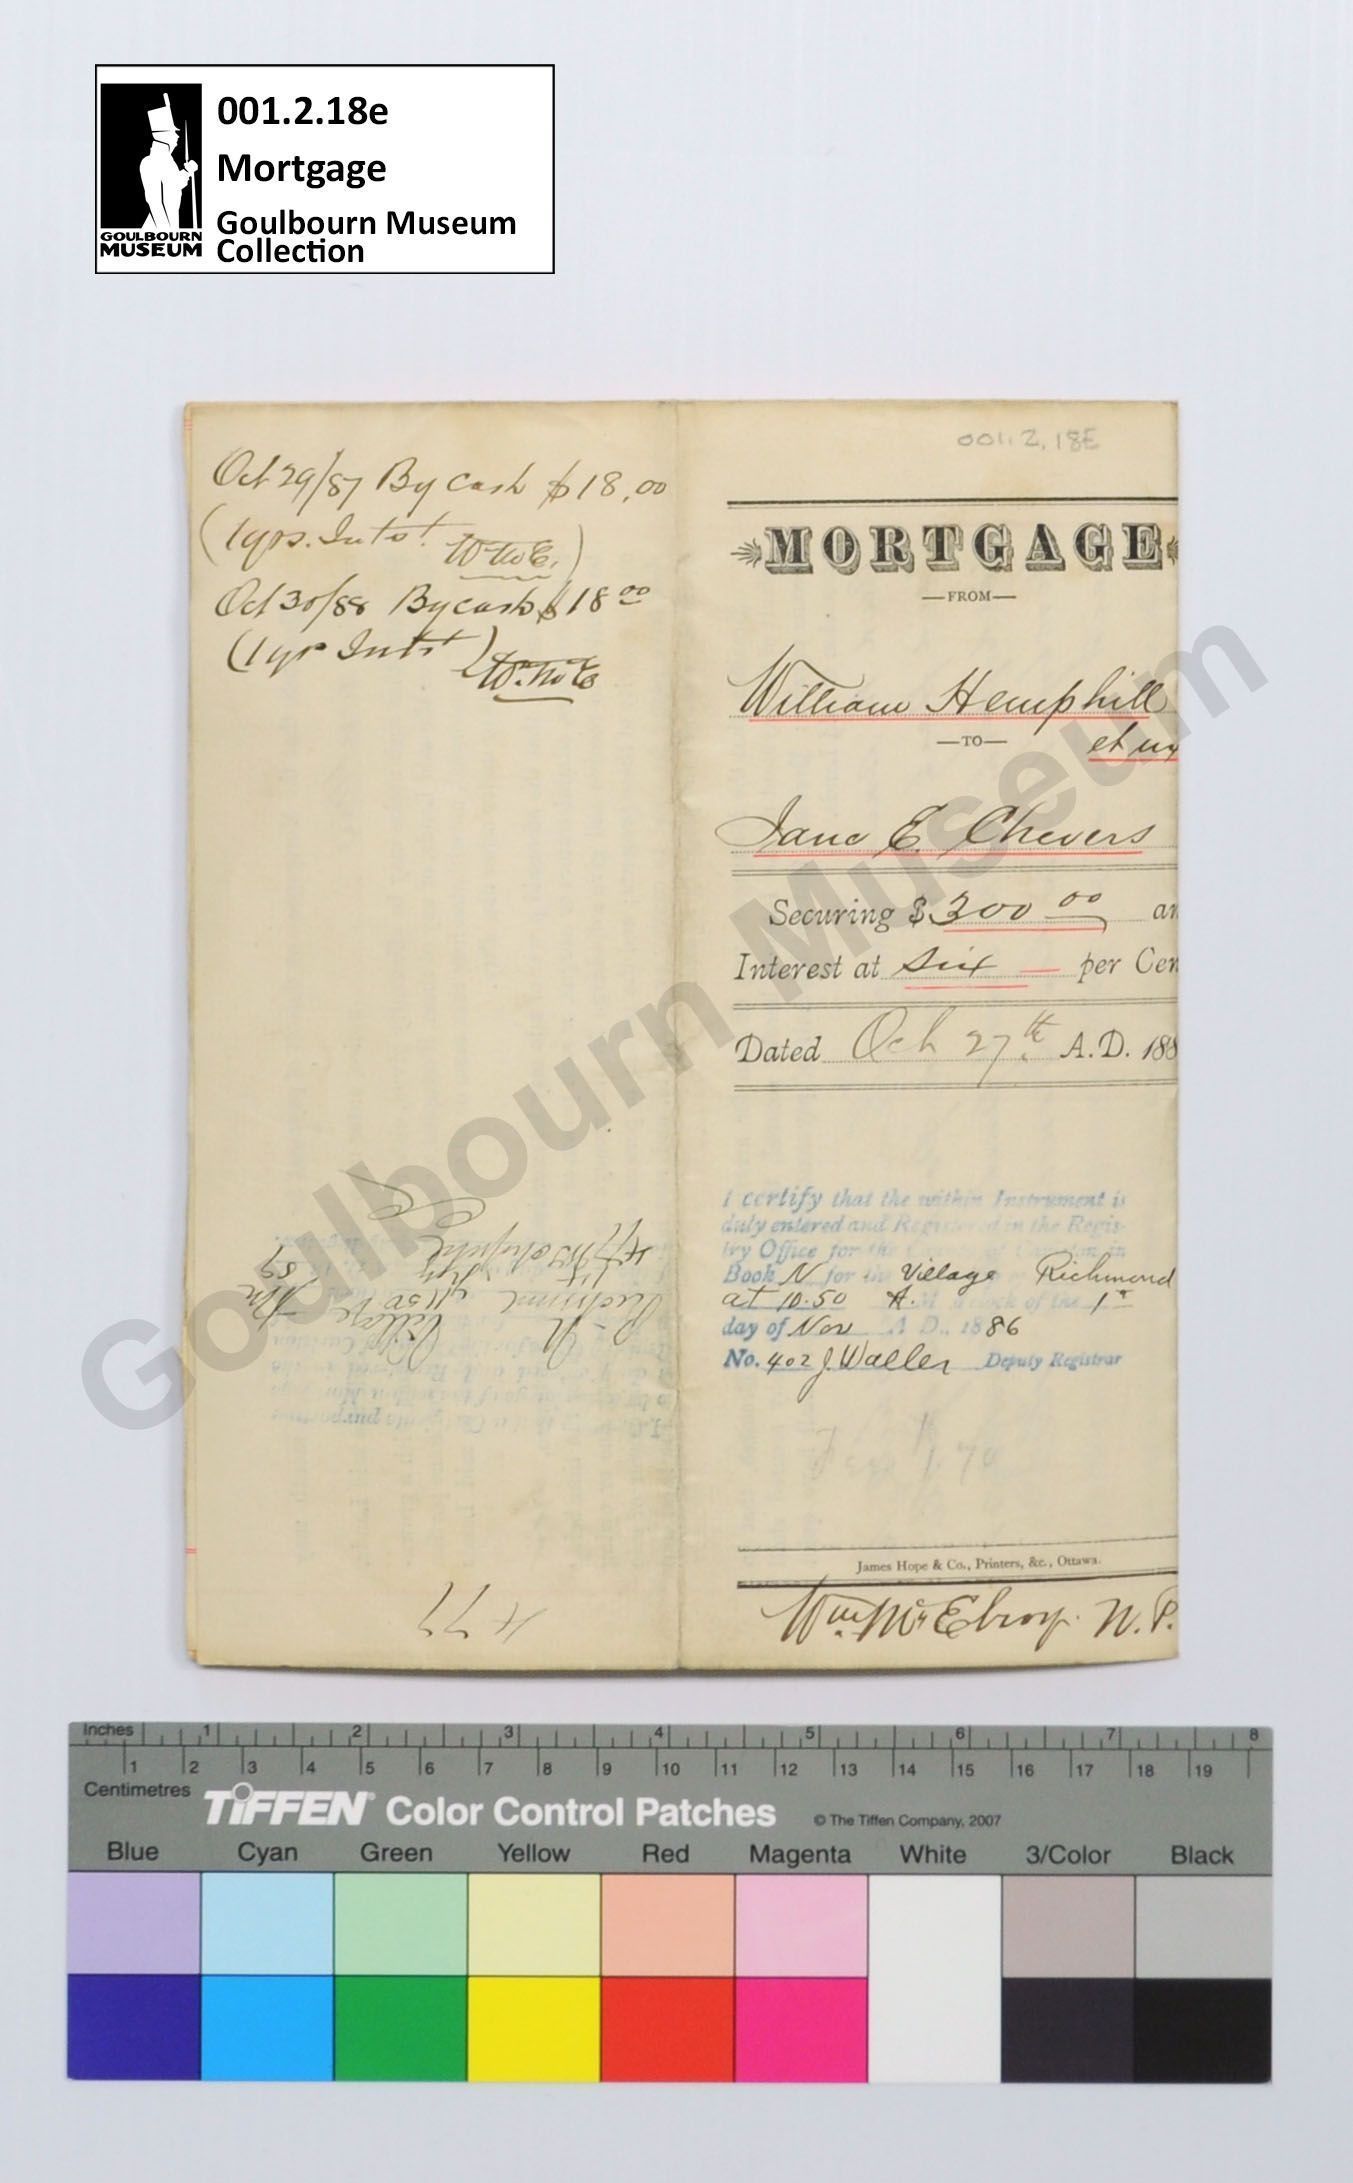 001.2.18e
Mortgage
Goulbourn Museum
Collection
GOULBOURN
MUSEUM
Oct 29/87 By Cash $18.00
(1 yrs. Intst. W McE.)
Oct 30/88 By cash $18 00
(1 yr Intst) Wm McE
477
001.2.18E
MORTGAGE
—FROM—
William Hemphill
—TO— et ux
Jane E. Chevers
Securing $300 00 an
Interest at six — per Cen
Dated Oct 27th. A.D. 188
I certify that the within Instrument is
duly entered and Registered in the Regis-
try Office for the County of Carleton in
Book N for the Village Richmond
at 10.50 A.M o'clock of the 1st
day of Nov A.D., 1886
No. 402 J. Waller Deputy Registrar
James Hope & Co., Printers, &c., Ottawa.
Wm. McElroy. N.P.
Goulbourn Museum
Inches 1 2 3 4 5 6 7 8
1 2 3 4 5 6 7 8 9 10 11 12 13 14 15 16 17 18 19
Centimetres
TIFFEN® Color Control Patches © The Tiffen Company, 2007
Blue Cyan Green Yellow Red Magenta White 3/Color Black